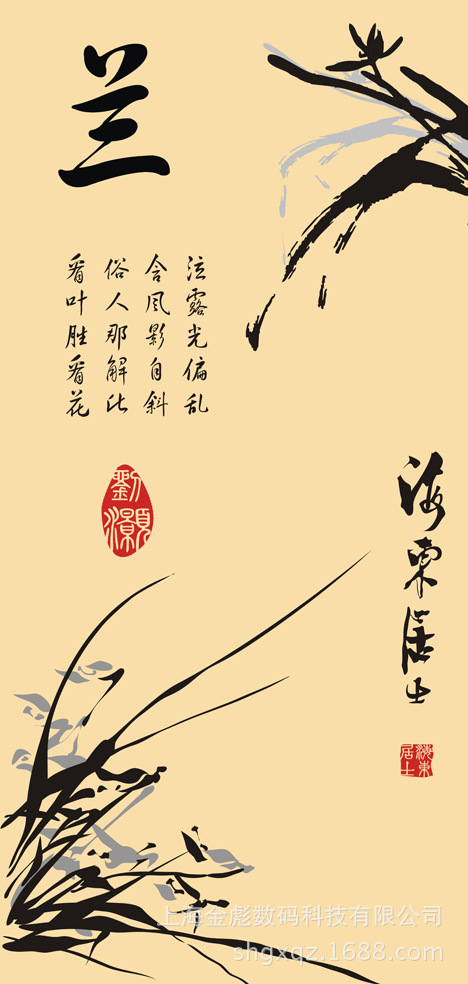 兰
泣露光偏乱
含风影自斜
俗人那解比
看叶胜看花
劉灝
海東居士
海東居士
上海金彪数码科技有限公司
shgxqz.1688.com